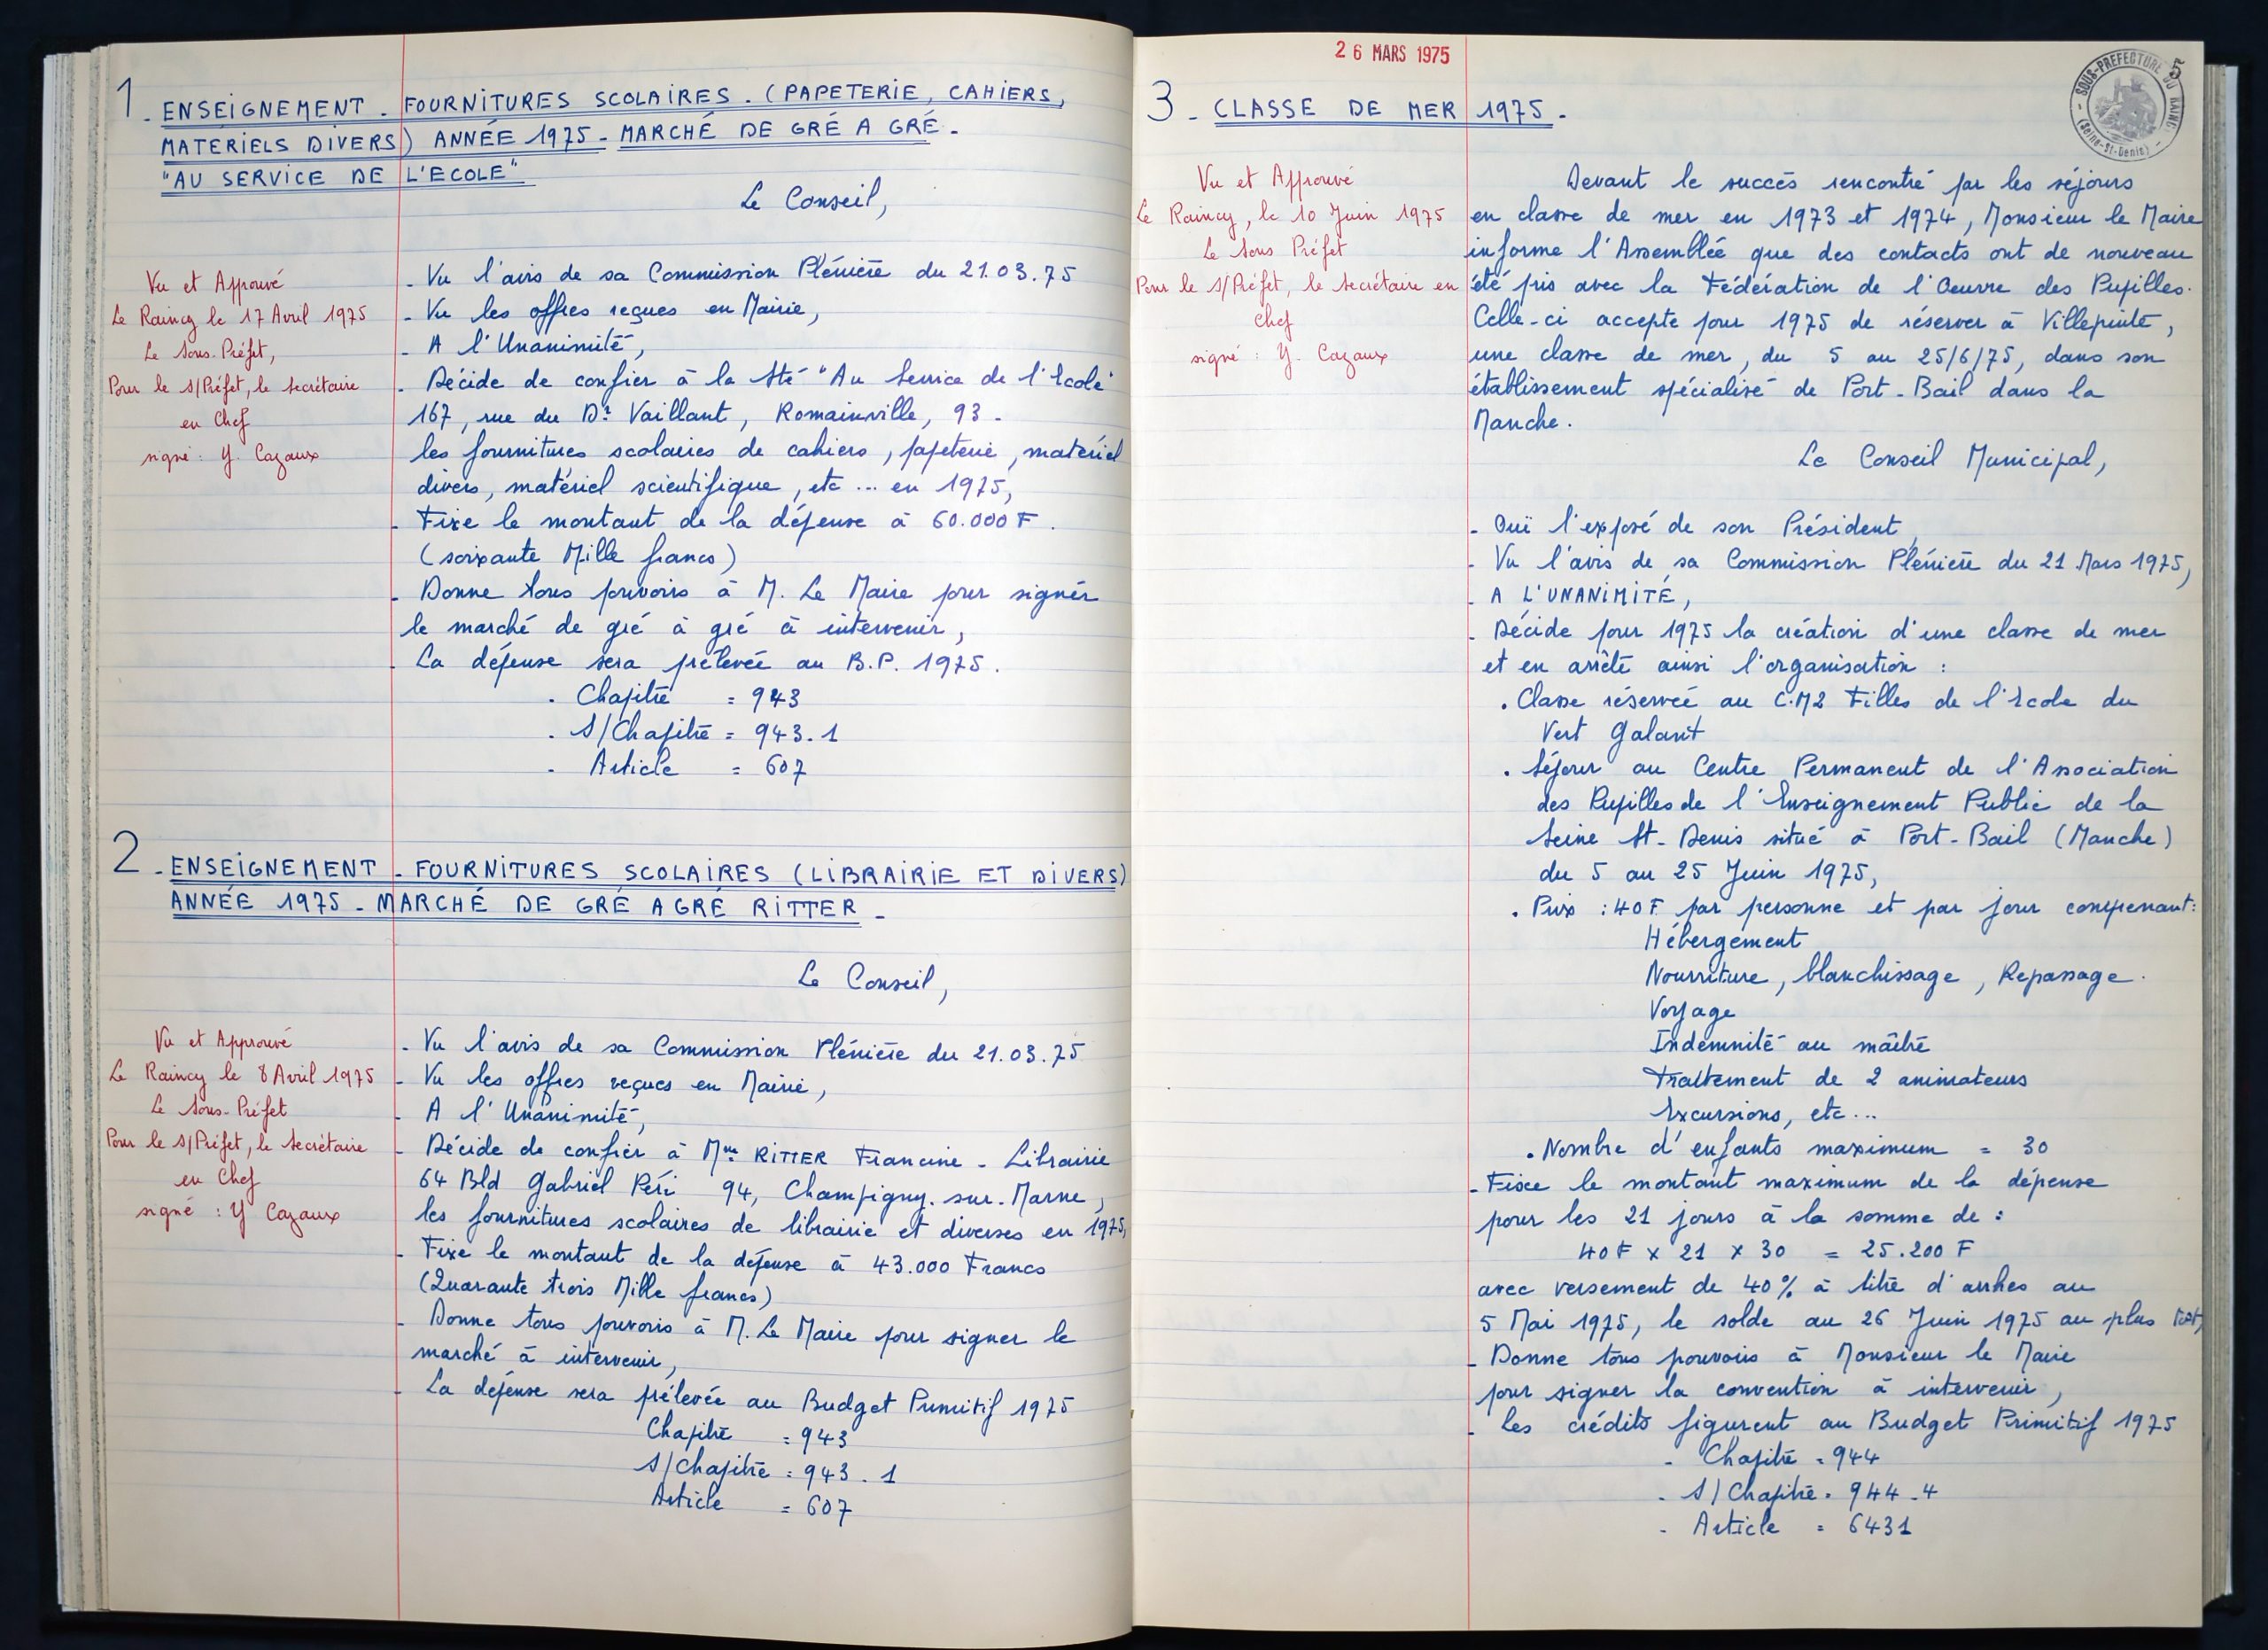 1. ENSEIGNEMENT. FOURNITURES SCOLAIRES. (PAPETERIE, CAHIERS,
MATERIELS DIVERS) ANNÉE 1975 - MARCHÉ DE GRÉ A GRÉ -
"AU SERVICE DE L'ECOLE"
Le Conseil,
Vu et Approuvé
Le Raincy le 17 Avril 1975
Le Sous-Préfet,
Pour le S/Préfet, le Secrétaire
en Chef
signé : Y. Cazaux
- Vu l'avis de sa Commission Plénière du 21.03.75
- Vu les offres reçues en Mairie,
- A l'Unanimité,
- Décide de confier à la Sté "Au Service de l'Ecole"
167, rue du Dr Vaillant, Romainville, 93 -
les fournitures scolaires de cahiers, papeterie, matériel
divers, matériel scientifique, etc ... en 1975,
- Fixe le montant de la dépense à 60.000 F.
(soixante Mille francs)
- Donne tous pouvoirs à M. Le Maire pour signer
le marché de gré à gré à intervenir,
- La dépense sera prélevée au B.P. 1975.
. Chapitre = 943
. S/Chapitre = 943.1
. Article = 607
2 - ENSEIGNEMENT - FOURNITURES SCOLAIRES (LIBRAIRIE ET DIVERS)
ANNÉE 1975 - MARCHÉ DE GRÉ A GRÉ RITTER -
Le Conseil,
Vu et Approuvé
Le Raincy le 8 Avril 1975
Le Sous-Préfet
Pour le S/Préfet, le Secrétaire
en Chef
signé : Y Cazaux
- Vu l'avis de sa Commission Plénière du 21.03.75
- Vu les offres reçues en Mairie,
- A l'Unanimité,
- Décide de confier à Mme RITTER Francine - Librairie
64 Bld Gabriel Péri 94, Champigny-sur-Marne,
les fournitures scolaires de librairie et diverses en 1975,
- Fixe le montant de la dépense à 43.000 Francs
(Quarante trois Mille francs)
- Donne tous pouvoirs à M. Le Maire pour signer le
marché à intervenir,
- La dépense sera prélevée au Budget Primitif 1975
Chapitre = 943
S/Chapitre = 943.1
Article = 607
26 MARS 1975
SOUS-PREFECTURE DU RAINCY
(Seine-St-Denis)
5
3 - CLASSE DE MER 1975.
Vu et Approuvé
Le Raincy, le 10 Juin 1975
Le Sous Préfet
Pour le S/Préfet, le Secrétaire en
Chef
signé : Y. Cazaux
Devant le succès rencontré par les séjours
en classe de mer en 1973 et 1974, Monsieur le Maire
informe l'Assemblée que des contacts ont de nouveau
été pris avec la Fédération de l'Oeuvre des Pupilles.
Celle-ci accepte pour 1975 de réserver à Villepinte,
une classe de mer, du 5 au 25/6/75, dans son
établissement spécialisé de Port-Bail dans la
Manche.
Le Conseil Municipal,
- Ouï l'exposé de son Président,
- Vu l'avis de sa Commission Plénière du 21 Mars 1975,
- A L'UNANIMITÉ,
- Décide pour 1975 la création d'une classe de mer
et en arrête ainsi l'organisation :
. Classe réservée au C.M2 Filles de l'Ecole du
Vert Galant
. Séjour au Centre Permanent de l'Association
des Pupilles de l'Enseignement Public de la
Seine St-Denis situé à Port-Bail (Manche)
du 5 au 25 Juin 1975,
. Prix : 40 F par personne et par jour comprenant :
Hébergement
Nourriture, blanchissage, Repassage.
Voyage
Indemnité au maître
Traitement de 2 animateurs
Excursions, etc...
. Nombre d'enfants maximum = 30
- Fixe le montant maximum de la dépense
pour les 21 jours à la somme de :
40 F x 21 x 30 = 25.200 F
avec versement de 40% à titre d'arrhes au
5 Mai 1975, le solde au 26 Juin 1975 au plus tôt,
- Donne tous pouvoirs à Monsieur le Maire
pour signer la convention à intervenir,
- Les crédits figurent au Budget Primitif 1975
- Chapitre = 944
- S/Chapitre = 944.4
- Article = 6431